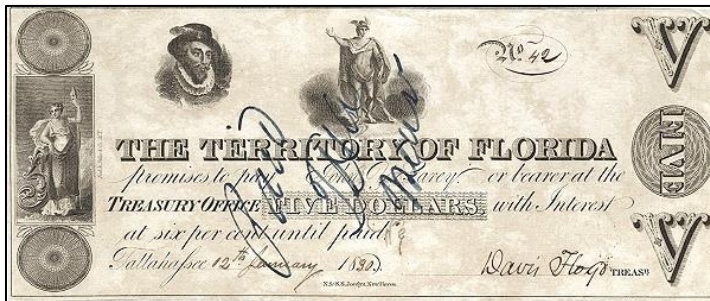 No. 42
V
THE TERRITORY OF FLORIDA
promises to pay John or bearer at the
TREASURY OFFICE FIVE DOLLARS, with Interest
at six per cent until paid
Tallahassee 12th January 1830.
Davis Floyd TREASR
FIVE
V
Paid